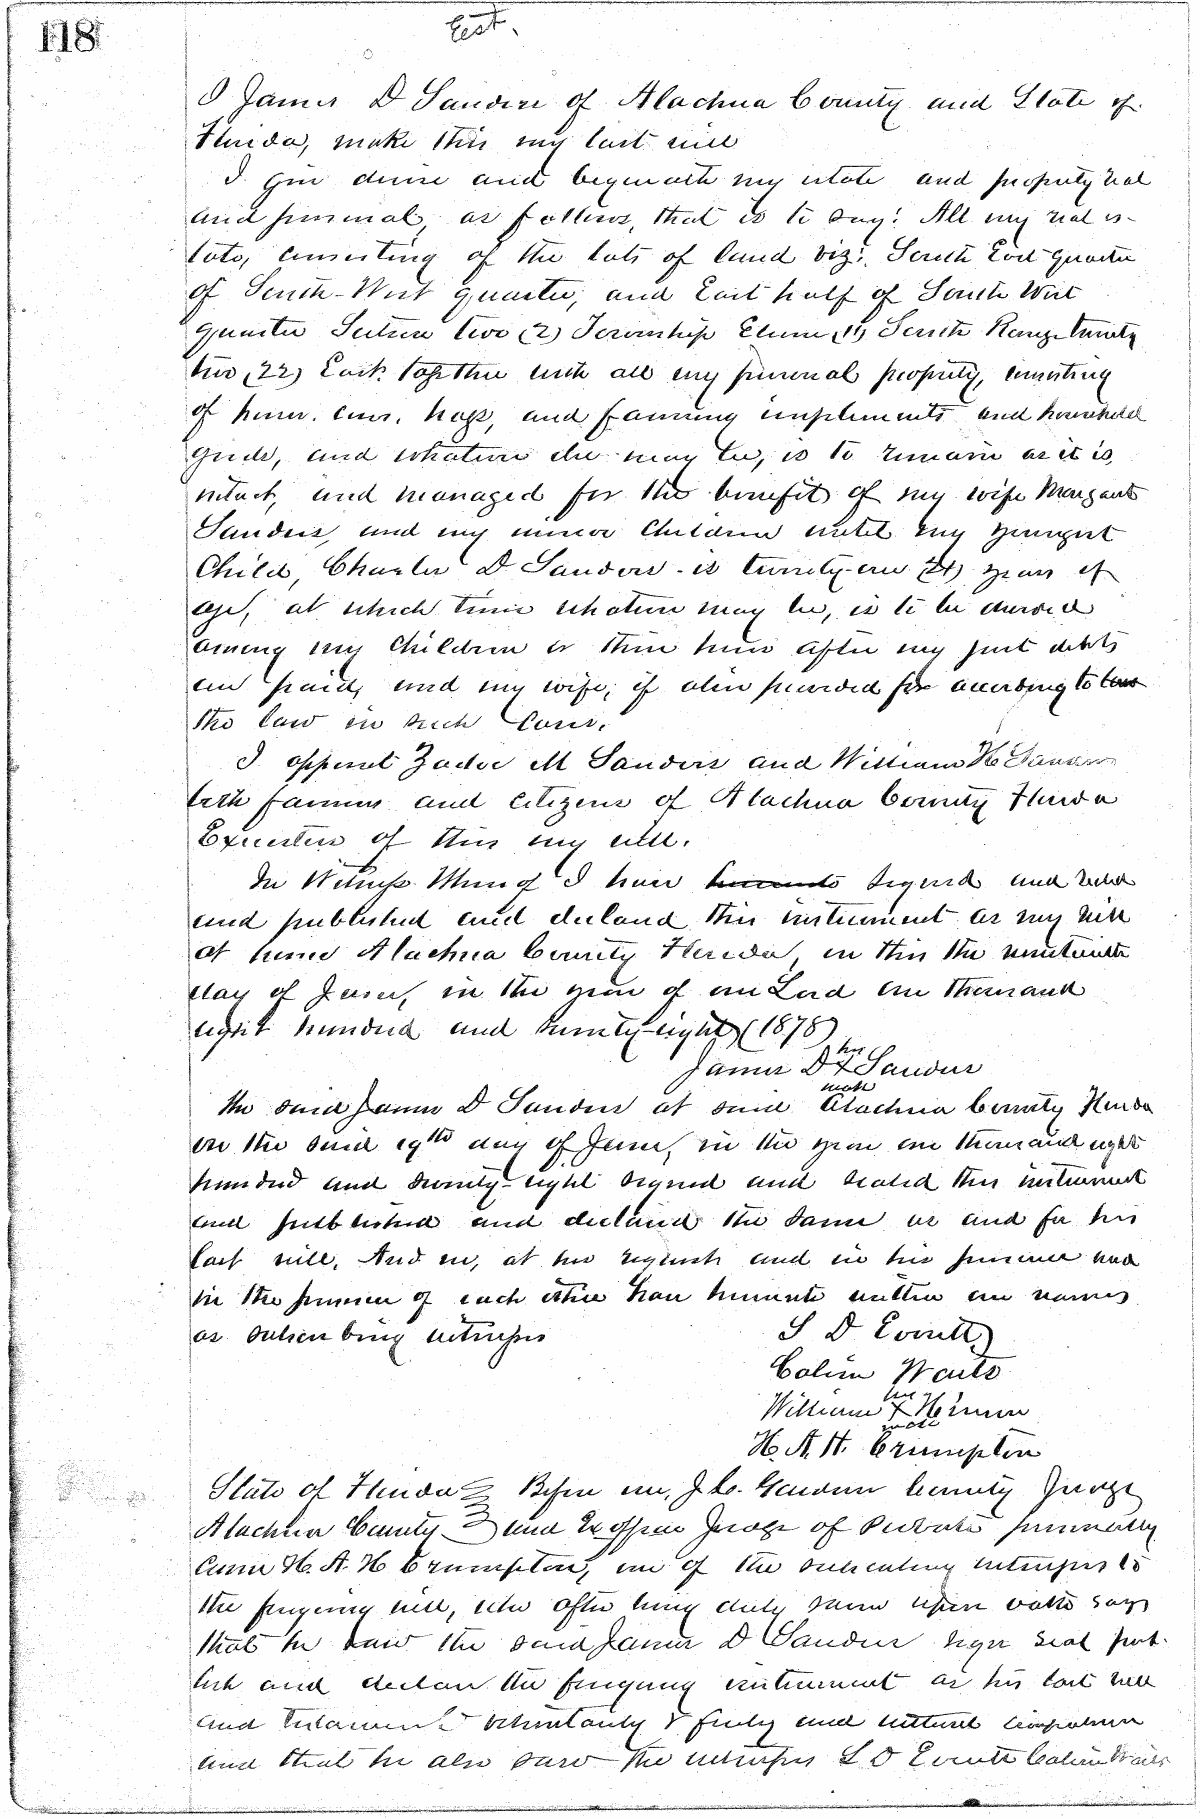 118
I James D Sanders of Alachua County and State of
Florida, make this my last will
I give devise and bequeath my estate and property real
and personal, as follows, that is to say: All my real es-
tate, consisting of the lots of land viz: South East quarter
of South-West quarter, and East half of South West
quarter Section two (2) Township Eleven (11) South Range twenty
two (22) East. Together with all my personal property, consisting
of horses. cows. hogs, and farming implements and household
goods, and whatever else may be, is to remain as it is,
intact, and managed for the benefit of my wife Margaret
Sanders, and my minor children until my youngest
Child, Charles D Sanders is twenty-one (21) years of
age, at which time whatever may be, is to be divided
among my children or their heirs after my just debts
are paid, and my wife, if alive provided for according to law
the law in such cases.
I appoint Zadoc M Sanders and William H Sanders
both farmers and citizens of Alachua County Florida
Executors of this my will.
In Witness Whereof I have hereunto signed and sealed
and published and declared this instrument as my will
at home Alachua County Florida, on this the nineteenth
day of June, in the year of our Lord one thousand
eight hundred and seventy-eight (1878)
his
James D X Sanders
mark
The said James D Sanders at said Alachua County Florida
on the said 19th day of June, in the year one thousand eight
hundred and seventy-eight signed and sealed this instrument
and published and declared the same as and for his
last will. And we, at his request and in his presence and
in the presence of each other have hereunto written our names
as subscribing witnesses
S D Everett
Calvin Waits
his
William X Hinson
mark
H. A. H. Crumpton
State of Florida } Before me, J. C. Gardner County Judge
Alachua County } and Ex officio Judge of Probate personally
came H. A. H Crumpton, one of the subscribing witnesses to
the foregoing will, who after being duly sworn upon oath says
that he saw the said James D Sanders sign seal pub-
lish and declare the foregoing instrument as his last will
and testament voluntarily & freely and without compulsion
and that he also saw the witnesses S D Everett Calvin Waits